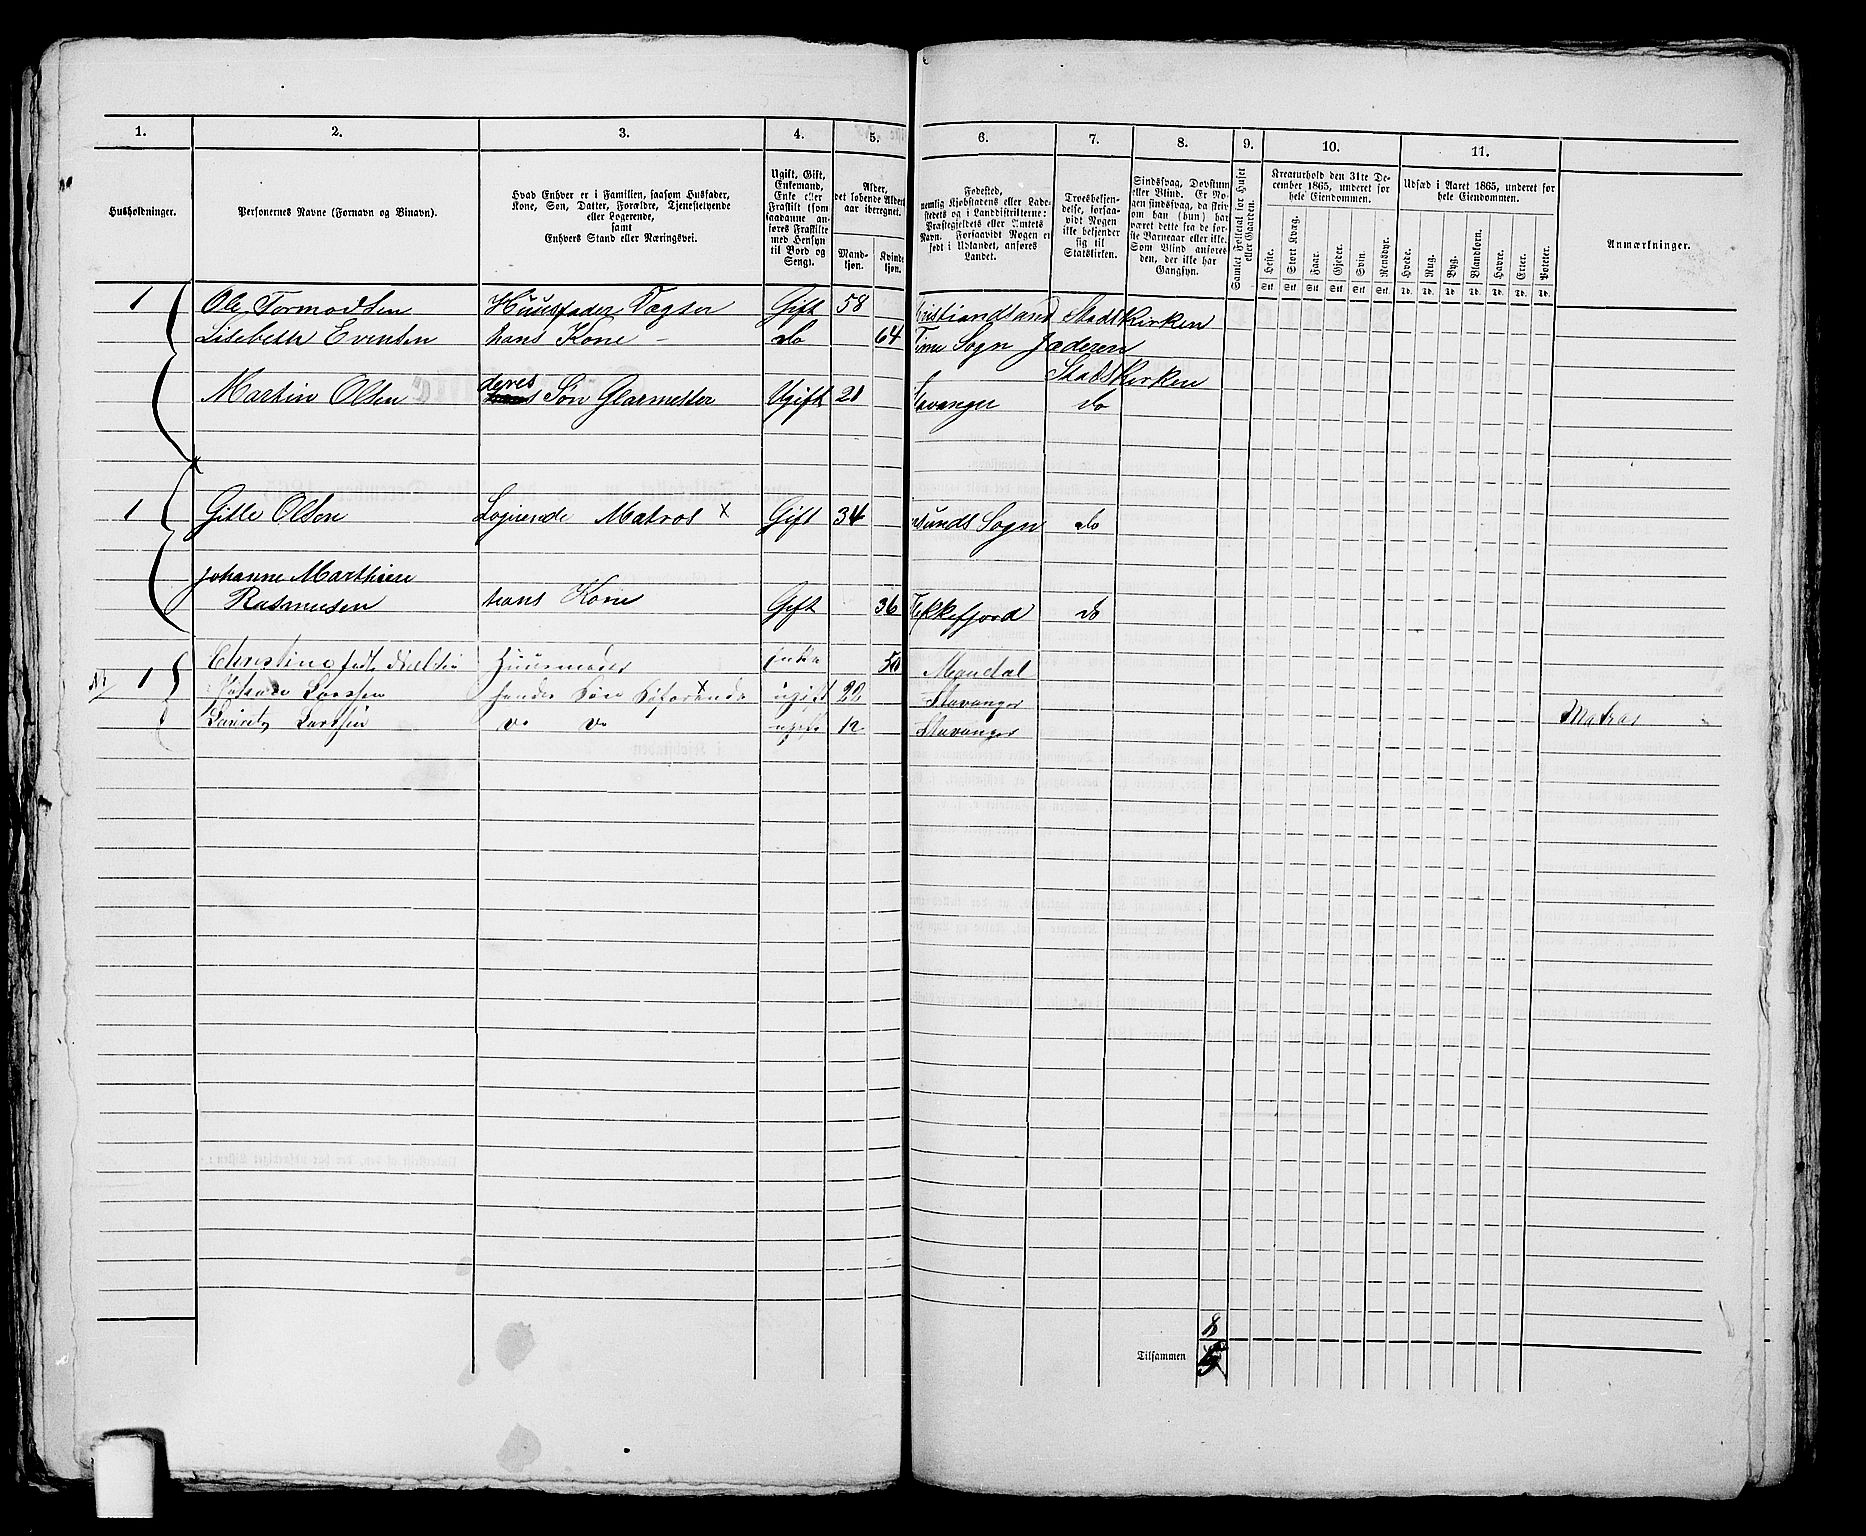 1. 2. 3. 4. 5. 6. 7. 8. 9. 10. 11.
Husholdninger.
Personernes Navne (Fornavn og Binavn).
Hvad Enhver er i Familien, saasom Husfader,
Kone, Søn, Datter, Forældre, Tjenestetyende
eller Logerende,
samt
Enhvers Stand eller Næringsvei.
Ugift, Gift,
Enkemand,
Enke eller
Fraskilt (som
saadanne an-
føres Fraskilte
med Hensyn
til Bord og
Seng).
Alder,
det løbende Alders-
aar iberegnet.
Mand-
kjøn.
Kvinde
kjøn.
Fødested,
nemlig Kjøbstadens eller Lade-
stedets og i Landdistrikterne:
Præstegjeldets eller Amtets
Navn. Forsaavidt Nogen er
født i Udlandet, anføres
Landet.
Troesbekjen-
delse, forsaa-
vidt Nogen
ikke bekjender
sig til
Statskirken.
Sindssvag, Døvstum
eller Blind. Er No-
gen sindssvag, da skriv
om han (hun) har
været dette fra de før-
ste Barneaar eller ikke.
Som Blind anføres
den, der ikke har
Gangsyn.
Samlet Folketal for Huset
eller Gaarden.
Kreaturhold den 31te De-
cember 1865, underet for
hele Eiendommen.
Heste. Stort Kvæg. Faar. Gjeder. Svin. Rensdyr.
Stk. Stk. Stk. Stk. Stk. Stk.
Udsæd i Aaret 1865, underet for
hele Eiendommen.
Hvede. Rug. Byg. Blandkorn. Havre. Erter. Poteter.
Td. Td. Td. Td. Td. Td. Td.
Anmærkninger.
1 Ole Tormodsen Huusfader Gift 58 ristiandsand Statskirken
Lisebeth Evensen hans Kone - do 64 Time Sogn Jæderen
Statskirken
Martin Olsen deres Søn Glarmester Ugift 21 tavanger do
1 Gitle Olsen Logirende Matros x Gift 34 Sogn do
Johanne Marthine
Rasmusen hans Kone Gift 36 Flekkefjord do
1 Christine Huusmoder Enke 50 Mandal
Larsen Søn ugift 22 Stavanger Matros
Lauritz Larsen ugift 12 Stavanger
8
Tilsammen